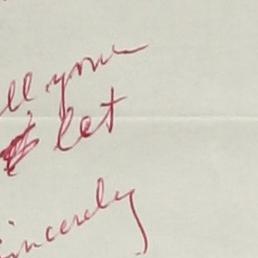 ll your
let
sincerely